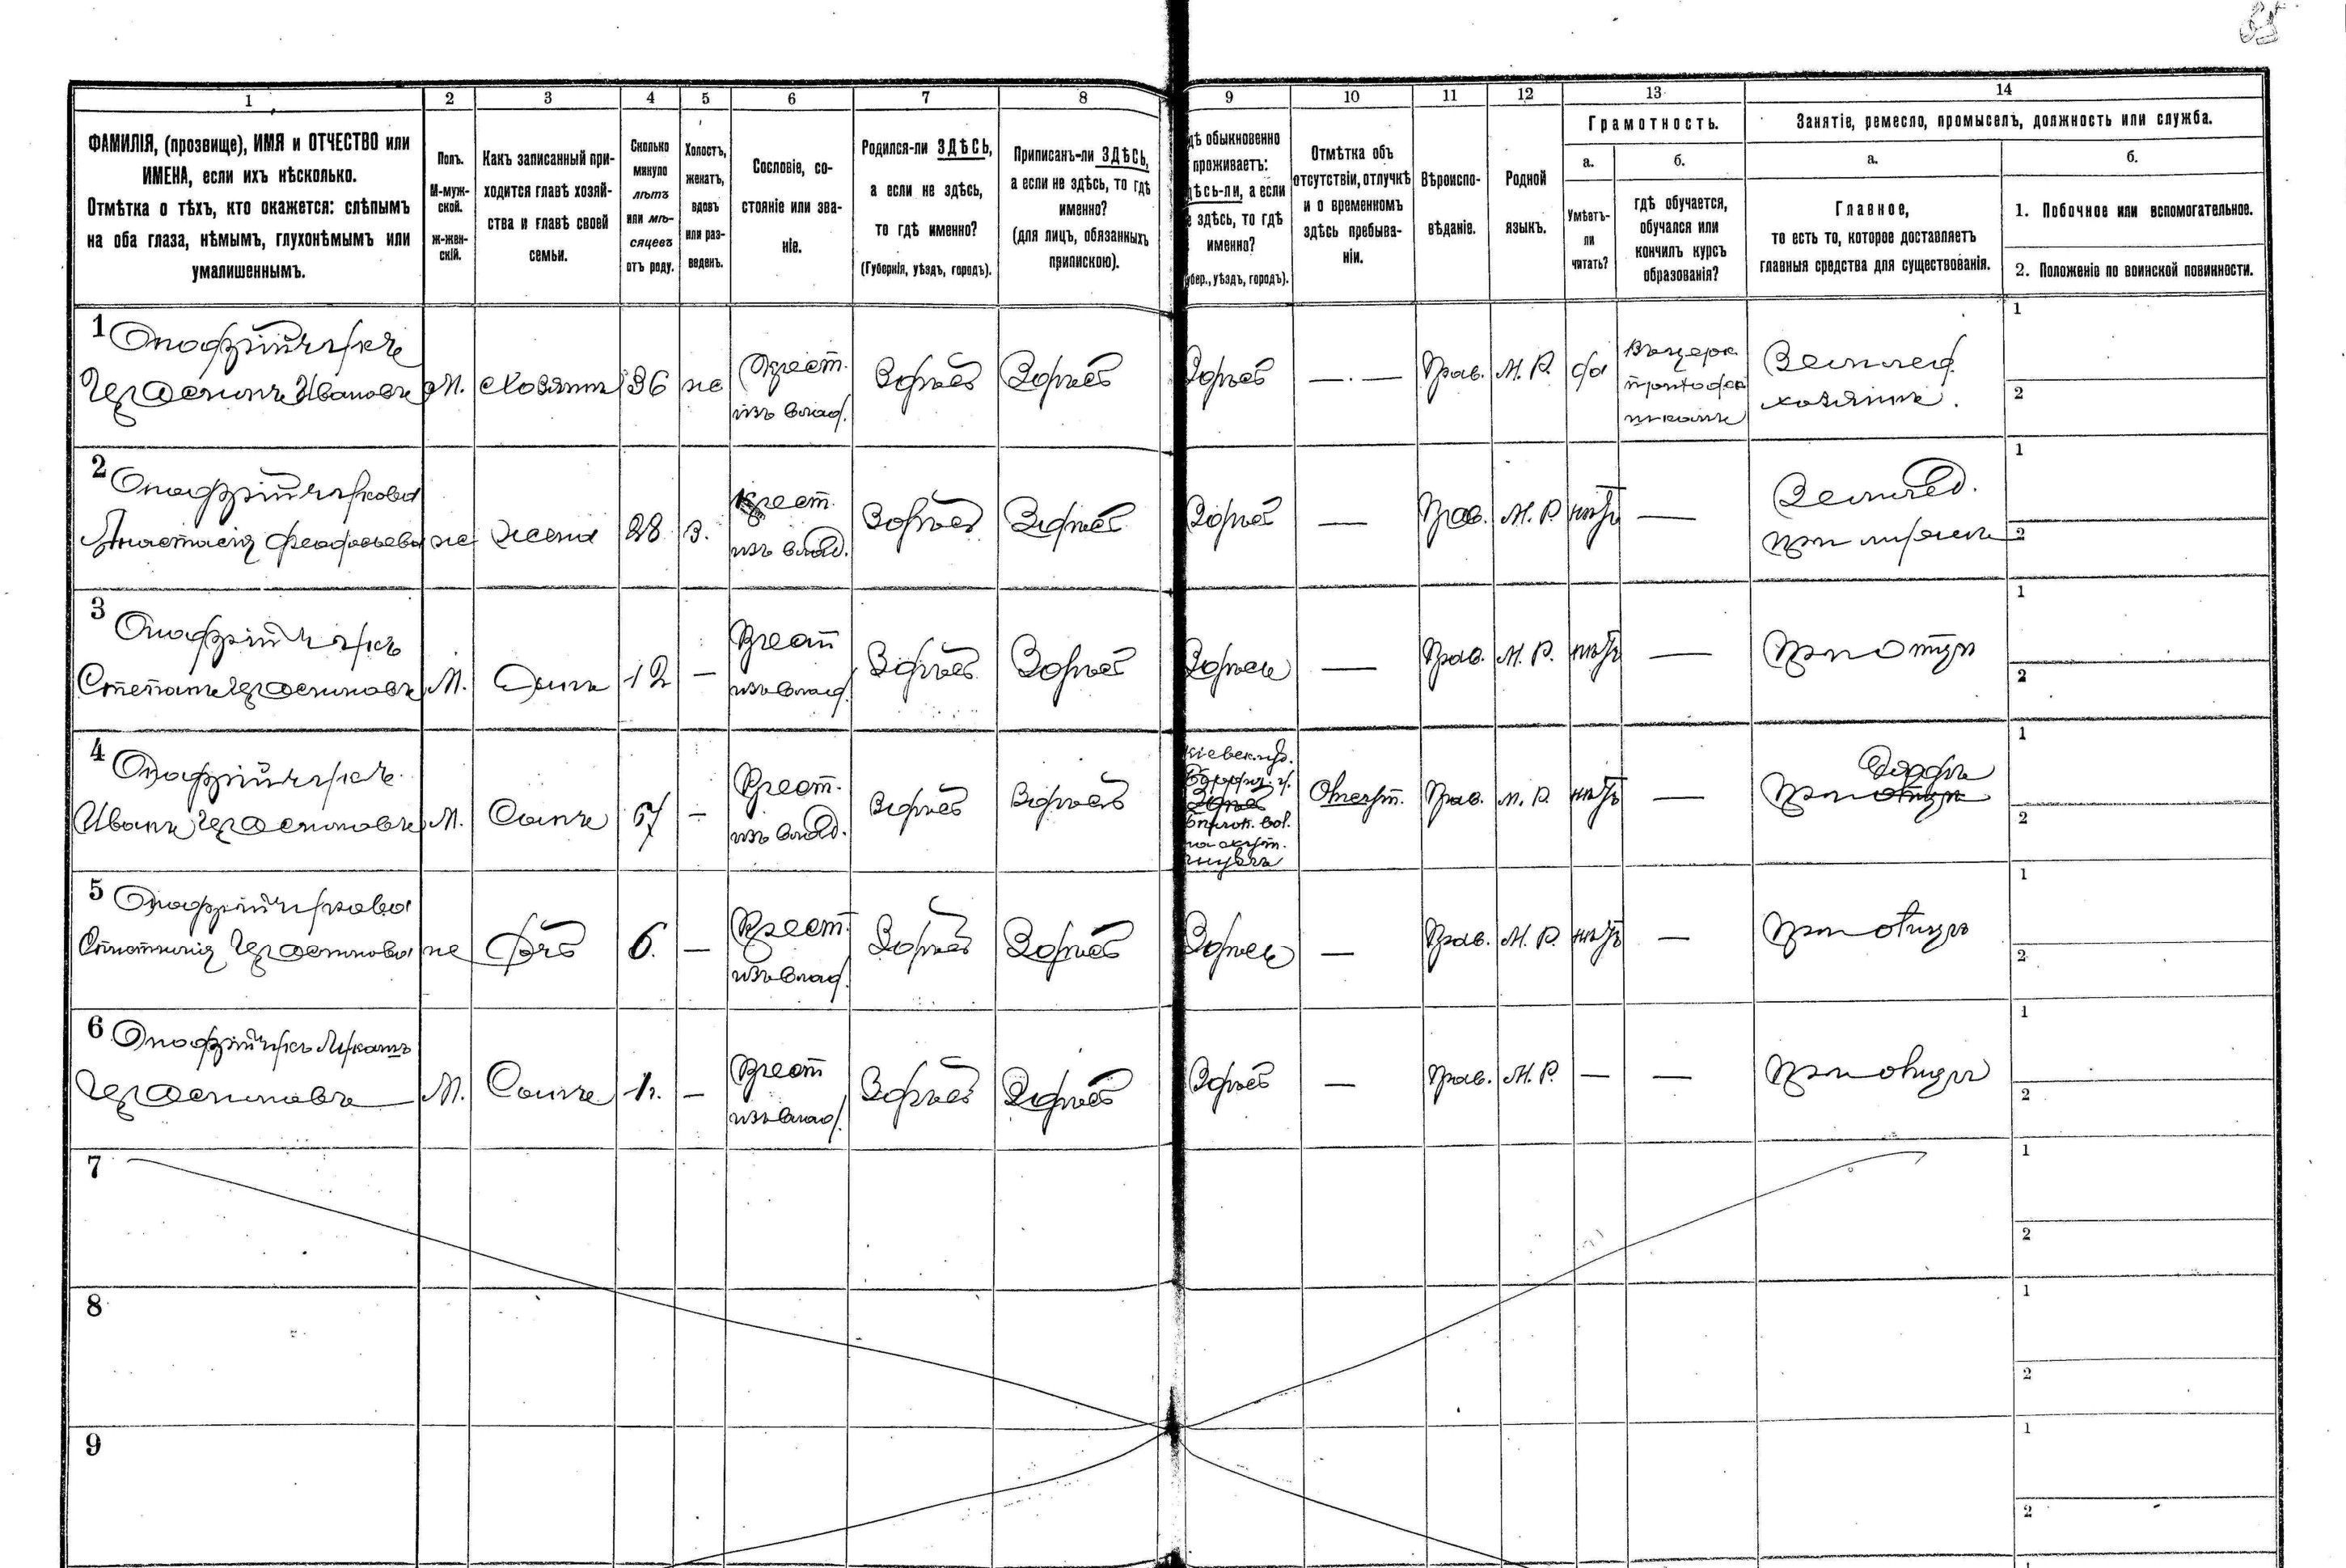 1
2
3
4
5
6
7
8
ФАМИЛІЯ, (прозвище), ИМЯ и ОТЧЕСТВО или
ИМЕНА, если ихъ нѣсколько.
Отмѣтка о тѣхъ, кто окажется: слѣпымъ
на оба глаза, нѣмымъ, глухонѣмымъ или
умалишеннымъ.
Полъ.
М-муж-
ской.
Ж-жен-
скій.
Какъ записанный при-
ходится главѣ хозяй-
ства и главѣ своей
семьи.
Сколько
минуло
лѣтъ
или мѣ-
сяцевъ
отъ роду.
Холостъ,
женатъ,
вдовъ
или раз-
веденъ.
Сословіе, со-
стояніе или зва-
ніе.
Родился-ли ЗДѢСЬ,
а если не здѣсь,
то гдѣ именно?
(Губернія, уѣздъ, городъ).
Приписанъ-ли ЗДѢСЬ,
а если не здѣсь, то гдѣ
именно?
(для лицъ, обязанныхъ
припискою).
9
10
11
12
13
14
дѣ обыкновенно
проживаетъ:
дѣсь-ли, а если
е здѣсь, то гдѣ
именно?
убер., уѣздъ, городъ).
Отмѣтка объ
отсутствіи, отлучкѣ
и о временномъ
здѣсь пребыва-
ніи.
Вѣроиспо-
вѣданіе.
Родной
языкъ.
Грамотность.
а.
Умѣетъ-
ли
читать?
б.
гдѣ обучается,
обучался или
кончилъ курсъ
образованія?
Занятіе, ремесло, промыселъ, должность или служба.
а.
Главное,
то есть то, которое доставляетъ
главныя средства для существованія.
б.
1. Побочное или вспомогательное.
2. Положеніе по воинской повинности.
1
Онофрійчукъ
Герасимъ Ивановъ
М.
Хозяинъ
36
же
Крест.
изъ влад.
Здѣсь
Здѣсь
Здѣсь
— . —
Прав.
М. Р.
да
школѣ
Землед.
хозяинъ.
1
2
2
Онофрійчукова
Анастасія Феодосьева
же
жена
28
З.
Крест.
изъ влад.
Здѣсь
Здѣсь
Здѣсь
—
Прав.
М. Р.
нѣтъ
—
Земled.
при мужѣ
1
2
3
Онофрійчукъ
Степанъ Герасимовъ
М.
Сынъ
12
—
Крест
изъ влад.
Здѣсь
Здѣсь
Здѣсь
—
Прав.
М. Р.
нѣтъ
—
при отцѣ
1
2
4
Онофрійчукъ
Иванъ Герасимовъ
М.
Сынъ
—
Крест.
изъ влад.
Здѣсь
Здѣсь
Кіевск. г.
Здѣсь
вол.
Отсут.
Прав.
М. Р.
нѣтъ
—
Дядѣ
при отцѣ
1
2
5
Онофрійчукова
Герасимова
же
дочь
6.
—
Крест.
изъ влад.
Здѣсь
Здѣсь
Здѣсь
—
Прав.
М. Р.
нѣтъ
—
при отцѣ
1
2
6
Онофрійчукъ Лукашъ
Герасимовъ
М.
Сынъ
1г.
—
Крест
изъ влад.
Здѣсь
Здѣсь
Здѣсь
—
Прав.
М. Р.
—
—
при отцѣ
1
2
7
1
2
8
1
2
9
1
2